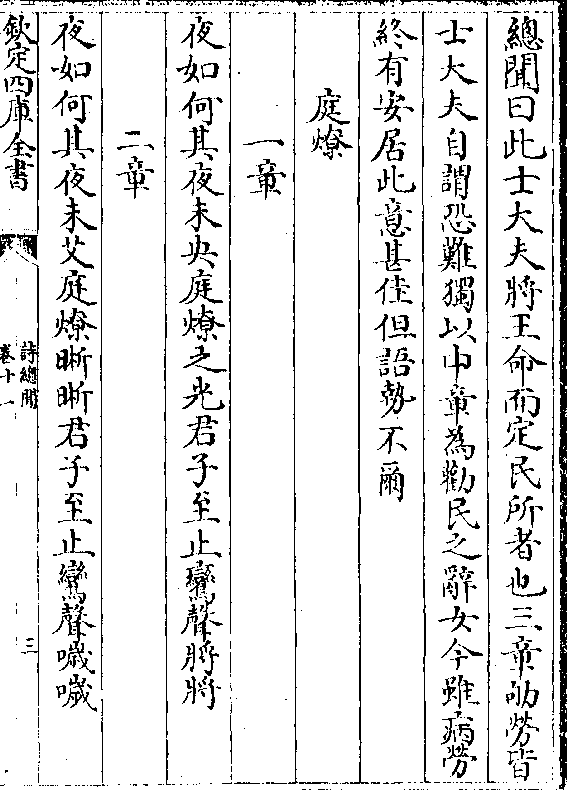 總聞曰此士大夫將王命而定民所者也三章劬勞皆
士大夫自謂恐難獨以中章為勸民之辭女今雖病勞
終有安居此意甚佳但語勢不爾
庭燎
一章
夜如何其夜未央庭燎之光君子至止鸞聲將將
二章
夜如何其夜未艾庭燎晣晣君子至止鸞聲噦噦
欽定四庫全書
詩總聞
卷十一
三